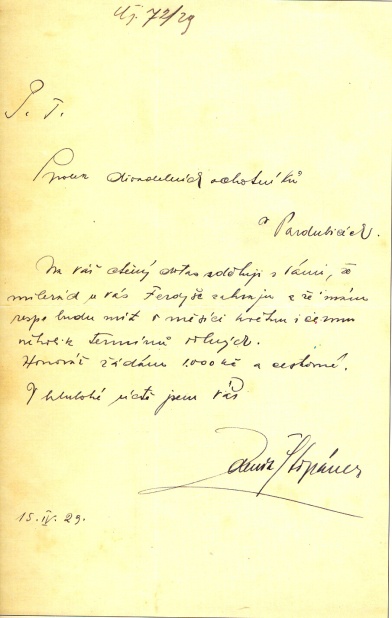 čj. 72/29
P. T.
Spolek divadelních ochotníků
v Pardubicích.
Na Váš ctěný dotaz sděluji s Vámi, že
milerád u vás Ferdyše zahraju a že mám
resp. budu mít v měsíci květnu i červnu
několik termínů volných.
Honorář žádám 1.000 Kč a cestovné.
V hluboké úctě jsem Váš
Štěpánek
15. IV. 29.